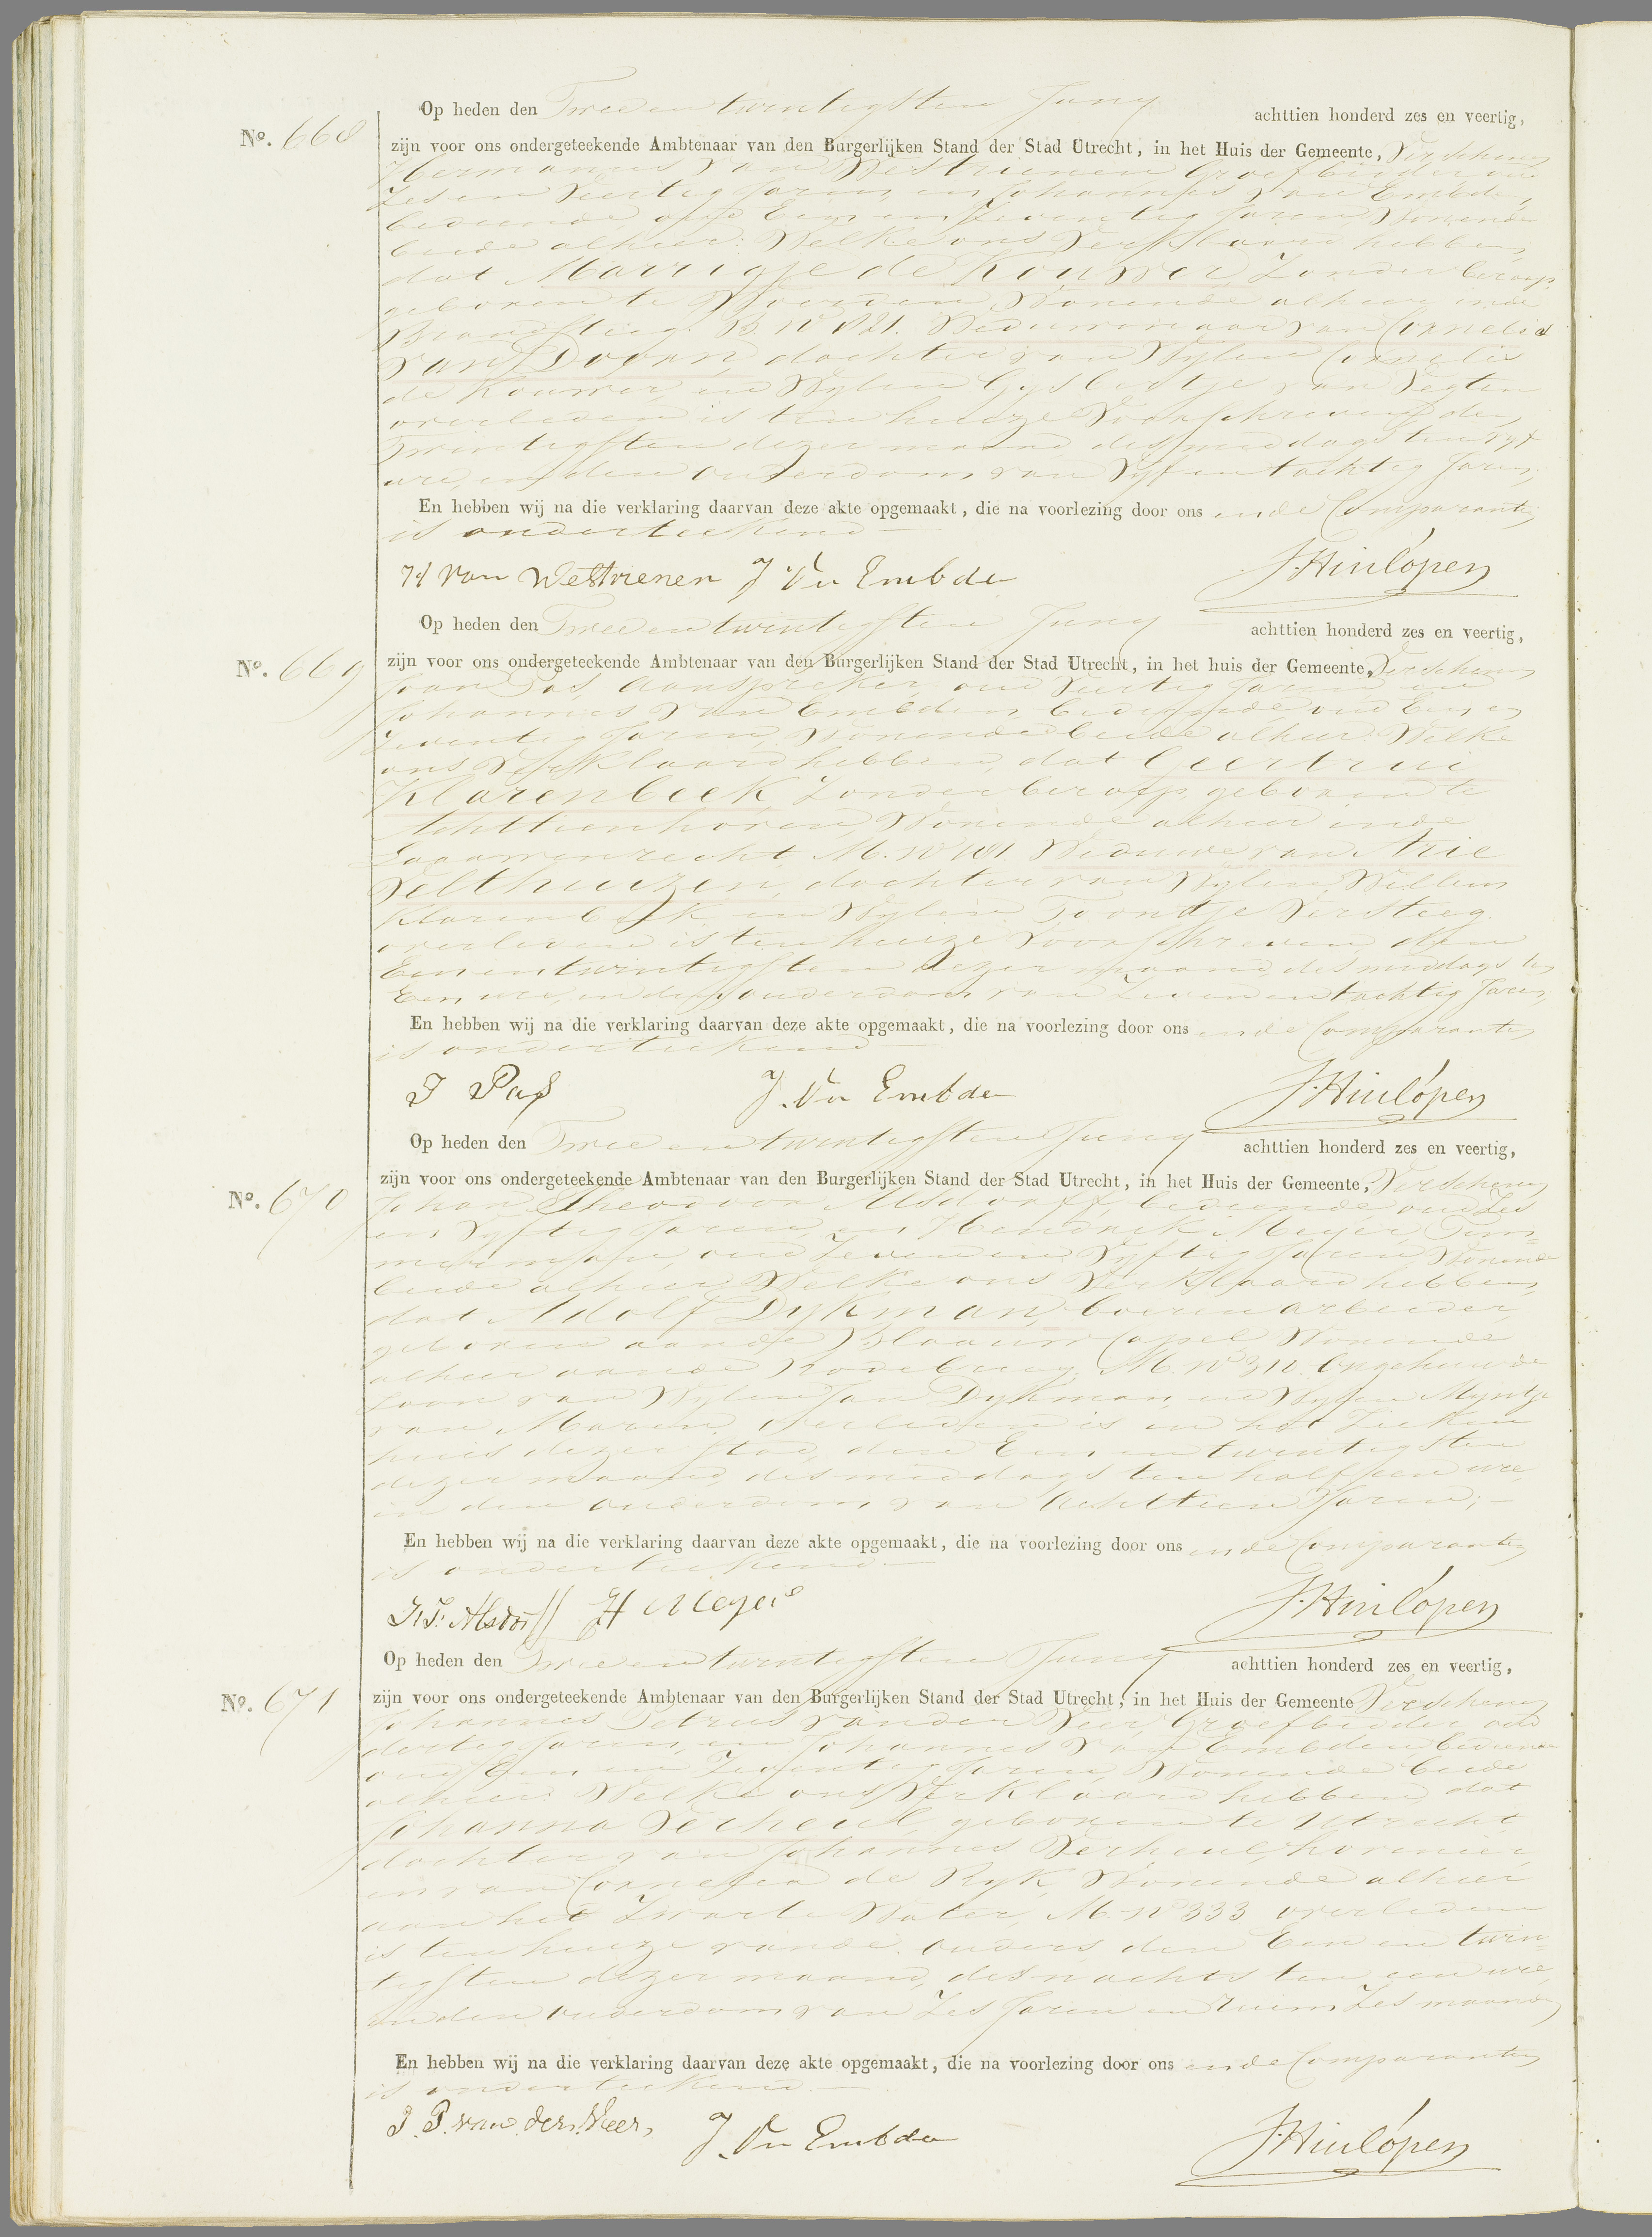 Op heden den Twee en twintigsten Juny achttien honderd zes en veertig,
No. 668
zijn voor ons ondergeteekende Ambtenaar van den Burgerlijken Stand der Stad Utrecht, in het Huis der Gemeente, Verschenen
Hermanus van Westrienen Groefbidder oud
Zes en Veertig Jaren, en Johannes van Embden,
bediende, oud Een en Zeventig Jaren, Wonende
beide alhier: Welke ons Verklaard hebben,
dat Marrigje de Kouwer, Zonder beroep
geboren te Woerden, Wonende alhier in de
Brandsteeg B No 821. Weduwe van Cornelis
van Doorn, dochter van Wylen Cornelis
de Kouwer, en Wylen Gysbertje van Vegten
overleden is ten huize Voorschreven den
Twintigsten dezer maand, des middags ten vyf
ure, in den Ouderdom van Vyf en tachtig Jaren,
En hebben wij na die verklaring daarvan deze akte opgemaakt, die na voorlezing door ons en de Comparanten
is onderteekend
H van Westrienen J Vn Embde J. Hinlópen
Op heden den Twee en twintigsten Juny achttien honderd zes en veertig,
No. 669
zijn voor ons ondergeteekende Ambtenaar van den Burgerlijken Stand der Stad Utrecht, in het huis der Gemeente, Verschenen
Joan Pas, Aanspreker, oud Veertig Jaren en
Johannes van Embden, bediende, oud Een en
Zeventig Jaren, Wonende beide alhier: Welke
ons Verklaard hebben, dat Geertrui
Klarenbeek, Zonder beroep, geboren te
Achttienhoven, Wonende alhier in de
Laauwenrecht M. No 181. Weduwe van Arie
Velthuizen, dochter van Wylen Willem
Klarenbeek, en Wylen Toontje Versteeg.
overleden is ten huize Voorschreven den
Een en twintigsten dezer maand, des middags ten
Een ure, in den ouderdom van Zeven en tachtig Jaren,
En hebben wij na die verklaring daarvan deze akte opgemaakt, die na voorlezing door ons en de Comparanten
is onderteekend
J Pas J. Vn Embde J. Hinlópen
Op heden den Twee en twintigsten Juny achttien honderd zes en veertig,
No. 670
zijn voor ons ondergeteekende Ambtenaar van den Burgerlijken Stand der Stad Utrecht, in het Huis der Gemeente, Verschenen
Johan Theodoor Alsdorff, bediende, oud Zes
en Vyftig Jaren, en Hendrik Meyer, Tim=
merman, oud Zeven en Vyftig Jaren, Wonende
beide alhier: Welke ons Verklaard hebben,
dat Adolf Dykman, boerenarbeider,
geboren aan de Blaauw Capel, Wonende
alhier aan de Roodebrug M. No 312. Ongehuwde
Zoon van Wylen Jan Dykman, en Wylen Myntje
van Maren, overleden is in het Zieken
huis dezer Stad, den Een en twintigsten
dezer maand, des middags ten half een ure
in den Ouderdom van Achttien Jaren;
En hebben wij na die verklaring daarvan deze akte opgemaakt, die na voorlezing door ons en de Comparanten
is onderteekend
J.T. Alsdorff H Meyer J. Hinlópen
Op heden den Twee en twintigsten Juny achttien honderd zes en veertig,
No. 671
zijn voor ons ondergeteekende Ambtenaar van den Burgerlijken Stand der Stad Utrecht, in het Huis der Gemeente Verschenen
Johannes Petrus van der Veer, Groefbidder, oud
dertig Jaren, en Johannes van Embden, bediende
oud Een en Zeventig Jaren, Wonende beide
alhier: Welke ons Verklaard hebben, dat
Johanna Verheul, geboren te Utrecht
dochter van Johannes Verheul, hovenier,
en van Cornelia de Ryk, Wonende alhier
aan het Zwarte Water, M. No 333 overleden
is ten huize van de Ouders den Een en twin=
tigsten dezer maand, des nachts ten een ure
in den ouderdom van Zes Jaren en ruim Zes maanden
En hebben wij na die verklaring daarvan deze akte opgemaakt, die na voorlezing door ons en de Comparanten
is onderteekend
J. P. van der Veer, J. Vn Embde J. Hinlópen